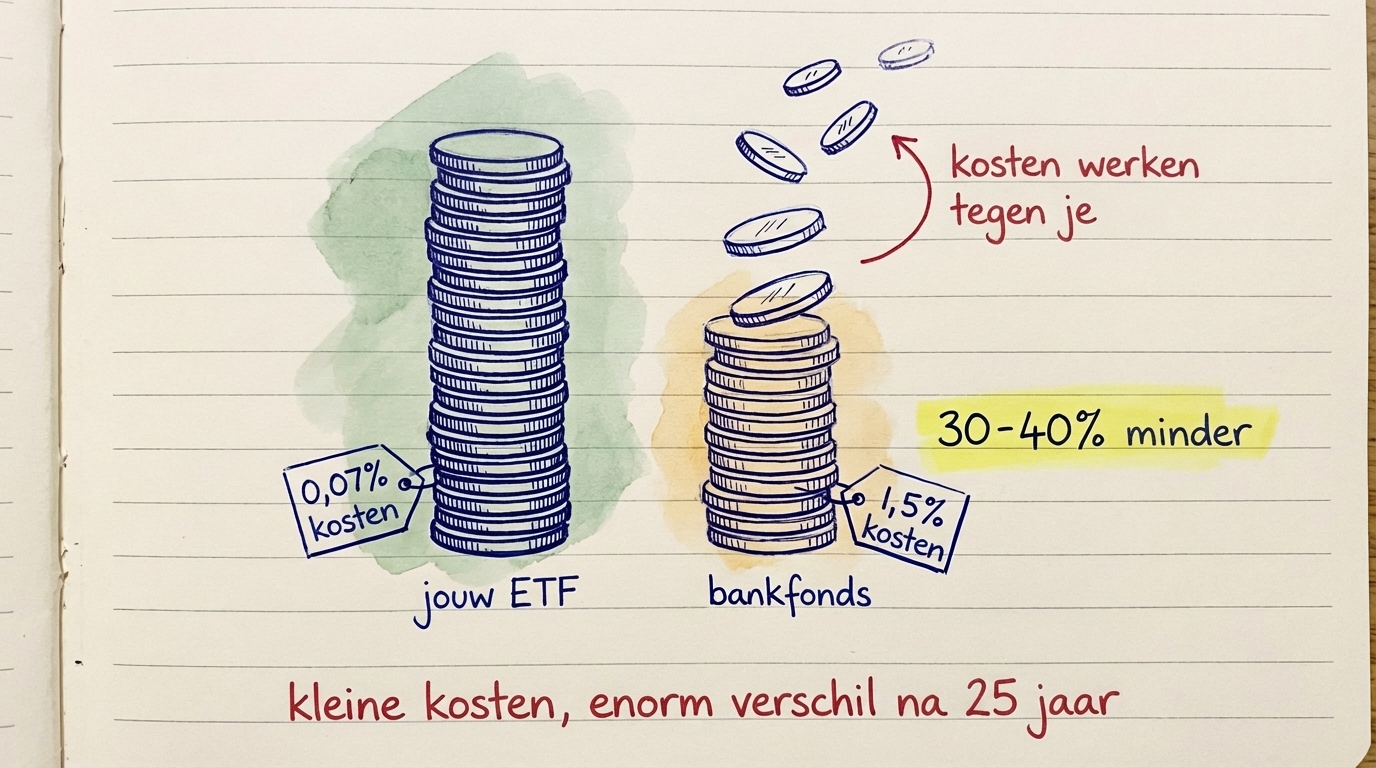 kosten werken
tegen je
30-40% minder
0,07%
kosten
1,5%
kosten
jouw ETF
bankfonds
kleine kosten, enorm verschil na 25 jaar